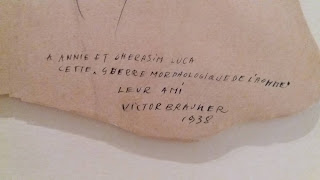 A ANNIE ET GHERASIM LUCA
CETTE "GUERRE MORPHOLOGIQUE DE L'HOMME"
LEUR AMI
VICTOR BRAUNER
1938